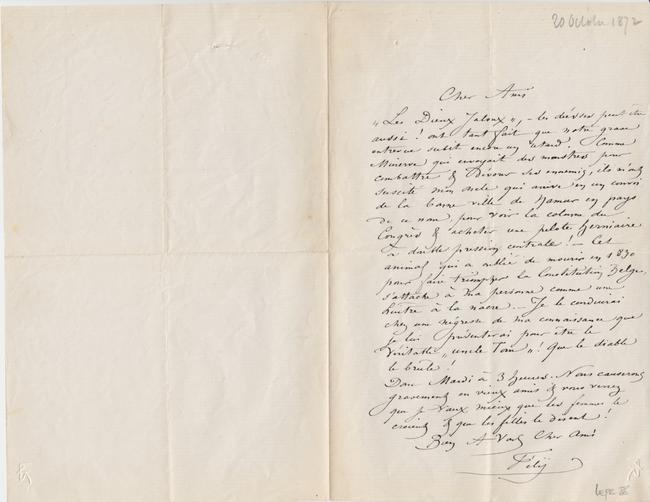 20 Octobre 1872
Cher Ami
"Les Dieux Jaloux", – les déesses peut être
aussi ! ont tant fait que notre grave
entrevue subit encore un retard. Comme
Minerve qui envoyait des monstres pour
combattre & dévorer ses ennemis, ils m'ont
suscité mon oncle qui arrive en un convoi
de la bonne ville de Namur en pays
de ce nom, pour voir la colonne du
Congrès & acheter une pelote herniaire
à double pression centrale ! – Cet
animal qui a oublié de mourir en 1830
pour faire triompher la Constitution Belge,
s'attache à ma personne comme une
huître à la nacre. – Je le conduirai
chez une négresse de ma connaissance que
je lui présenterai pour être le
véritable "uncle Tom" ! Que le diable
le brûle !
Donc Mardi à 3 heures. Nous causerons
gravement en vieux amis & vous verrez
que je vaux mieux que les femmes le
croient & que les filles le disent !
Bien à vous Cher Ami
Fély